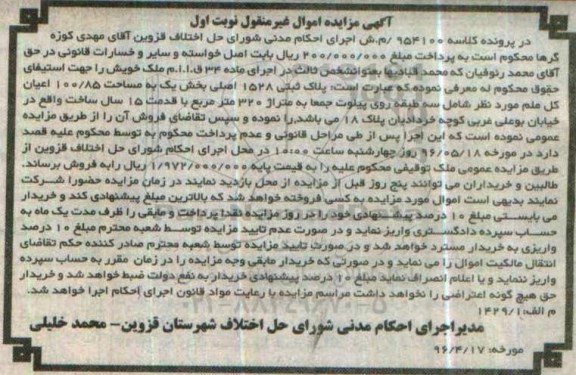 آگهی مزایده اموال غیرمنقول نوبت اول
در پرونده کلاسه ۹۵۴۱۰۰ /م.ش اجرای احکام مدنی شورای حل اختلاف قزوین آقای مهدی کوزه
گرها محکوم است به پرداخت مبلغ ۲۰۰/۰۰۰/۰۰۰ ریال بابت اصل خواسته و سایر و خسارات قانونی در حق
آقای محمد رئوفیان که محمد قبادیها بعنوانشخص ثالث در اجرای ماده ۳۴ ق.ا.ا.م ملک خویش را جهت استیفای
حقوق محکوم له معرفی نموده که عبارت است: پلاک ثبتی ۱۵۲۸ اصلی بخش یک به مساحت ۱۰۰/۸۵ اعیان
کل ملم مورد نظر شامل سه طبقه روی پیلوت جمعا به متراژ ۳۲۰ متر مربع با قدمت ۱۵ سال ساخت واقع در
خیابان بوعلی غربی کوچه خردادیان پلاک ۱۸ می باشد،را نموده و سپس تقاضای فروش آن را از طریق مزایده
عمومی نموده است که این اجرا پس از طی مراحل قانونی و عدم پرداخت محکوم به توسط محکوم علیه قصد
دارد در مورخه ۹۶/۰۵/۱۸ روز چهارشنبه ساعت ۱۰:۰۰ در محل اجرای احکام شورای حل اختلاف قزوین از
طریق مزایده عمومی ملک توقیفی محکوم علیه را به قیمت پایه ۱/۹۷۲/۰۰۰/۰۰۰ ریال رابه فروش برساند.
طالبین و خریداران می توانند پنج روز قبل از مزایده از محل بازدید نمایند در زمان مزایده حضورا شرکت
نمایند بدیهی است اموال مورد مزایده به کسی فروخته خواهد شد که بالاترین مبلغ پیشنهادی کند و خریدار
می بایستی مبلغ ۱۰ درصد پیشنهادی خود را در روز مزایده نقدا پرداخت و مابقی را ظرف مدت یک ماه به
حساب سپرده دادگستری واریز نماید و در صورت عدم تایید مزایده توسط شعبه محترم مبلغ ۱۰ درصد
واریزی به خریدار مسترد خواهد شد و در صورت تایید مزایده توسط شعبه محترم صادر کننده حکم تقاضای
انتقال مالکیت اموال را می نماید و در صورتی که خریدار مابقی وجه مزایده را در زمان مقرر به حساب سپرده
واریز ننماید و یا اعلام انصراف نماید مبلغ ۱۰ درصد پیشنهادی خریدار به نفع دولت ضبط خواهد شد و خریدار
حق هیچ گونه اعتراضی را نخواهد داشت مراسم مزایده با رعایت مواد قانون اجرای احکام اجرا خواهد شد.
م الف:۱۴۲۹/۱
مدیراجرای احکام مدنی شورای حل اختلاف شهرستان قزوین- محمد خلیلی
مورخه: ۹۶/۴/۱۷